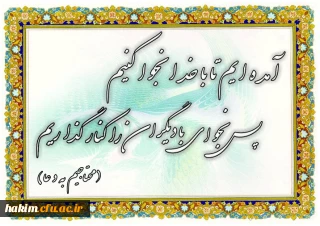 آمده ایم تا با خدا نجوا کنیم
پس نجوای با دیگران را کنار گذاریم
(محتاجیم به دعا)
hakim.cfu.ac.ir